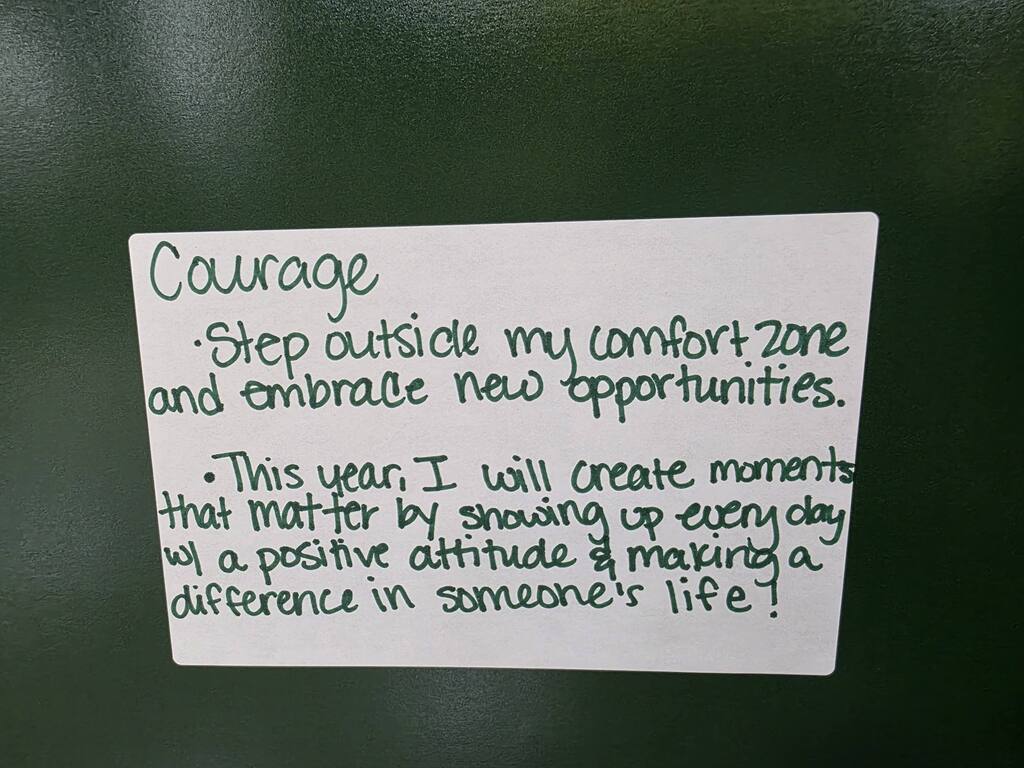 Courage
·Step outside my comfort zone
and embrace new opportunities.
•This year, I will create moments
that matter by showing up every day
w/ a positive attitude & making a
difference in someone's life!